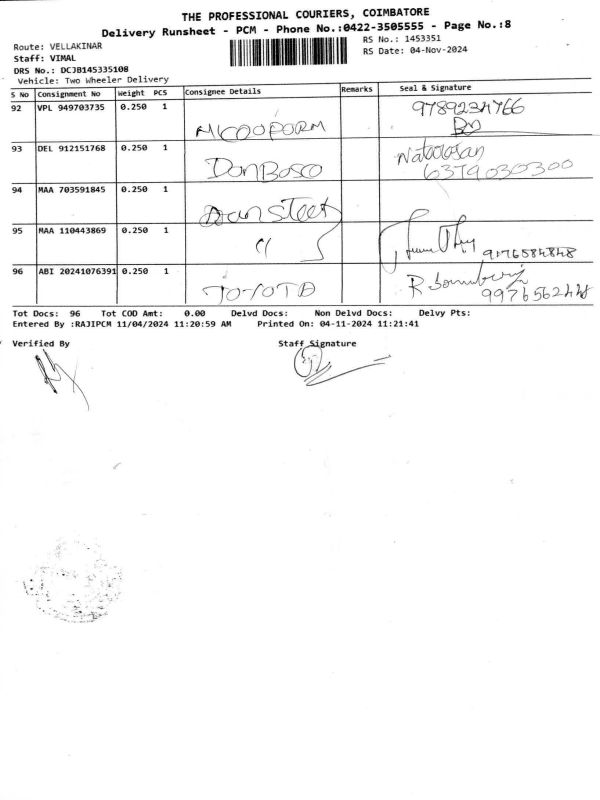 THE PROFESSIONAL COURIERS, COIMBATORE
Delivery Runsheet - PCM - Phone No.:0422-3505555 - Page No.:8
Route: VELLAKINAR
RS No.: 1453351
Staff: VIMAL
RS Date: 04-Nov-2024
DRS No.: DCJB145335108
Vehicle: Two Wheeler Delivery
S No Consignment No Weight PCS Consignee Details Remarks Seal & Signature
92 VPL 949703735 0.250 1 9789234766
93 DEL 912151768 0.250 1 DonBosco 6379030300
94 MAA 703591845 0.250 1
95 MAA 110443869 0.250 1 " 9176584848
96 ABI 20241076391 0.250 1 TOYOTA
Tot Docs: 96 Tot COD Amt: 0.00 Delvd Docs: Non Delvd Docs: Delvy Pts:
Entered By :RAJIPCM 11/04/2024 11:20:59 AM Printed On: 04-11-2024 11:21:41
Verified By Staff Signature